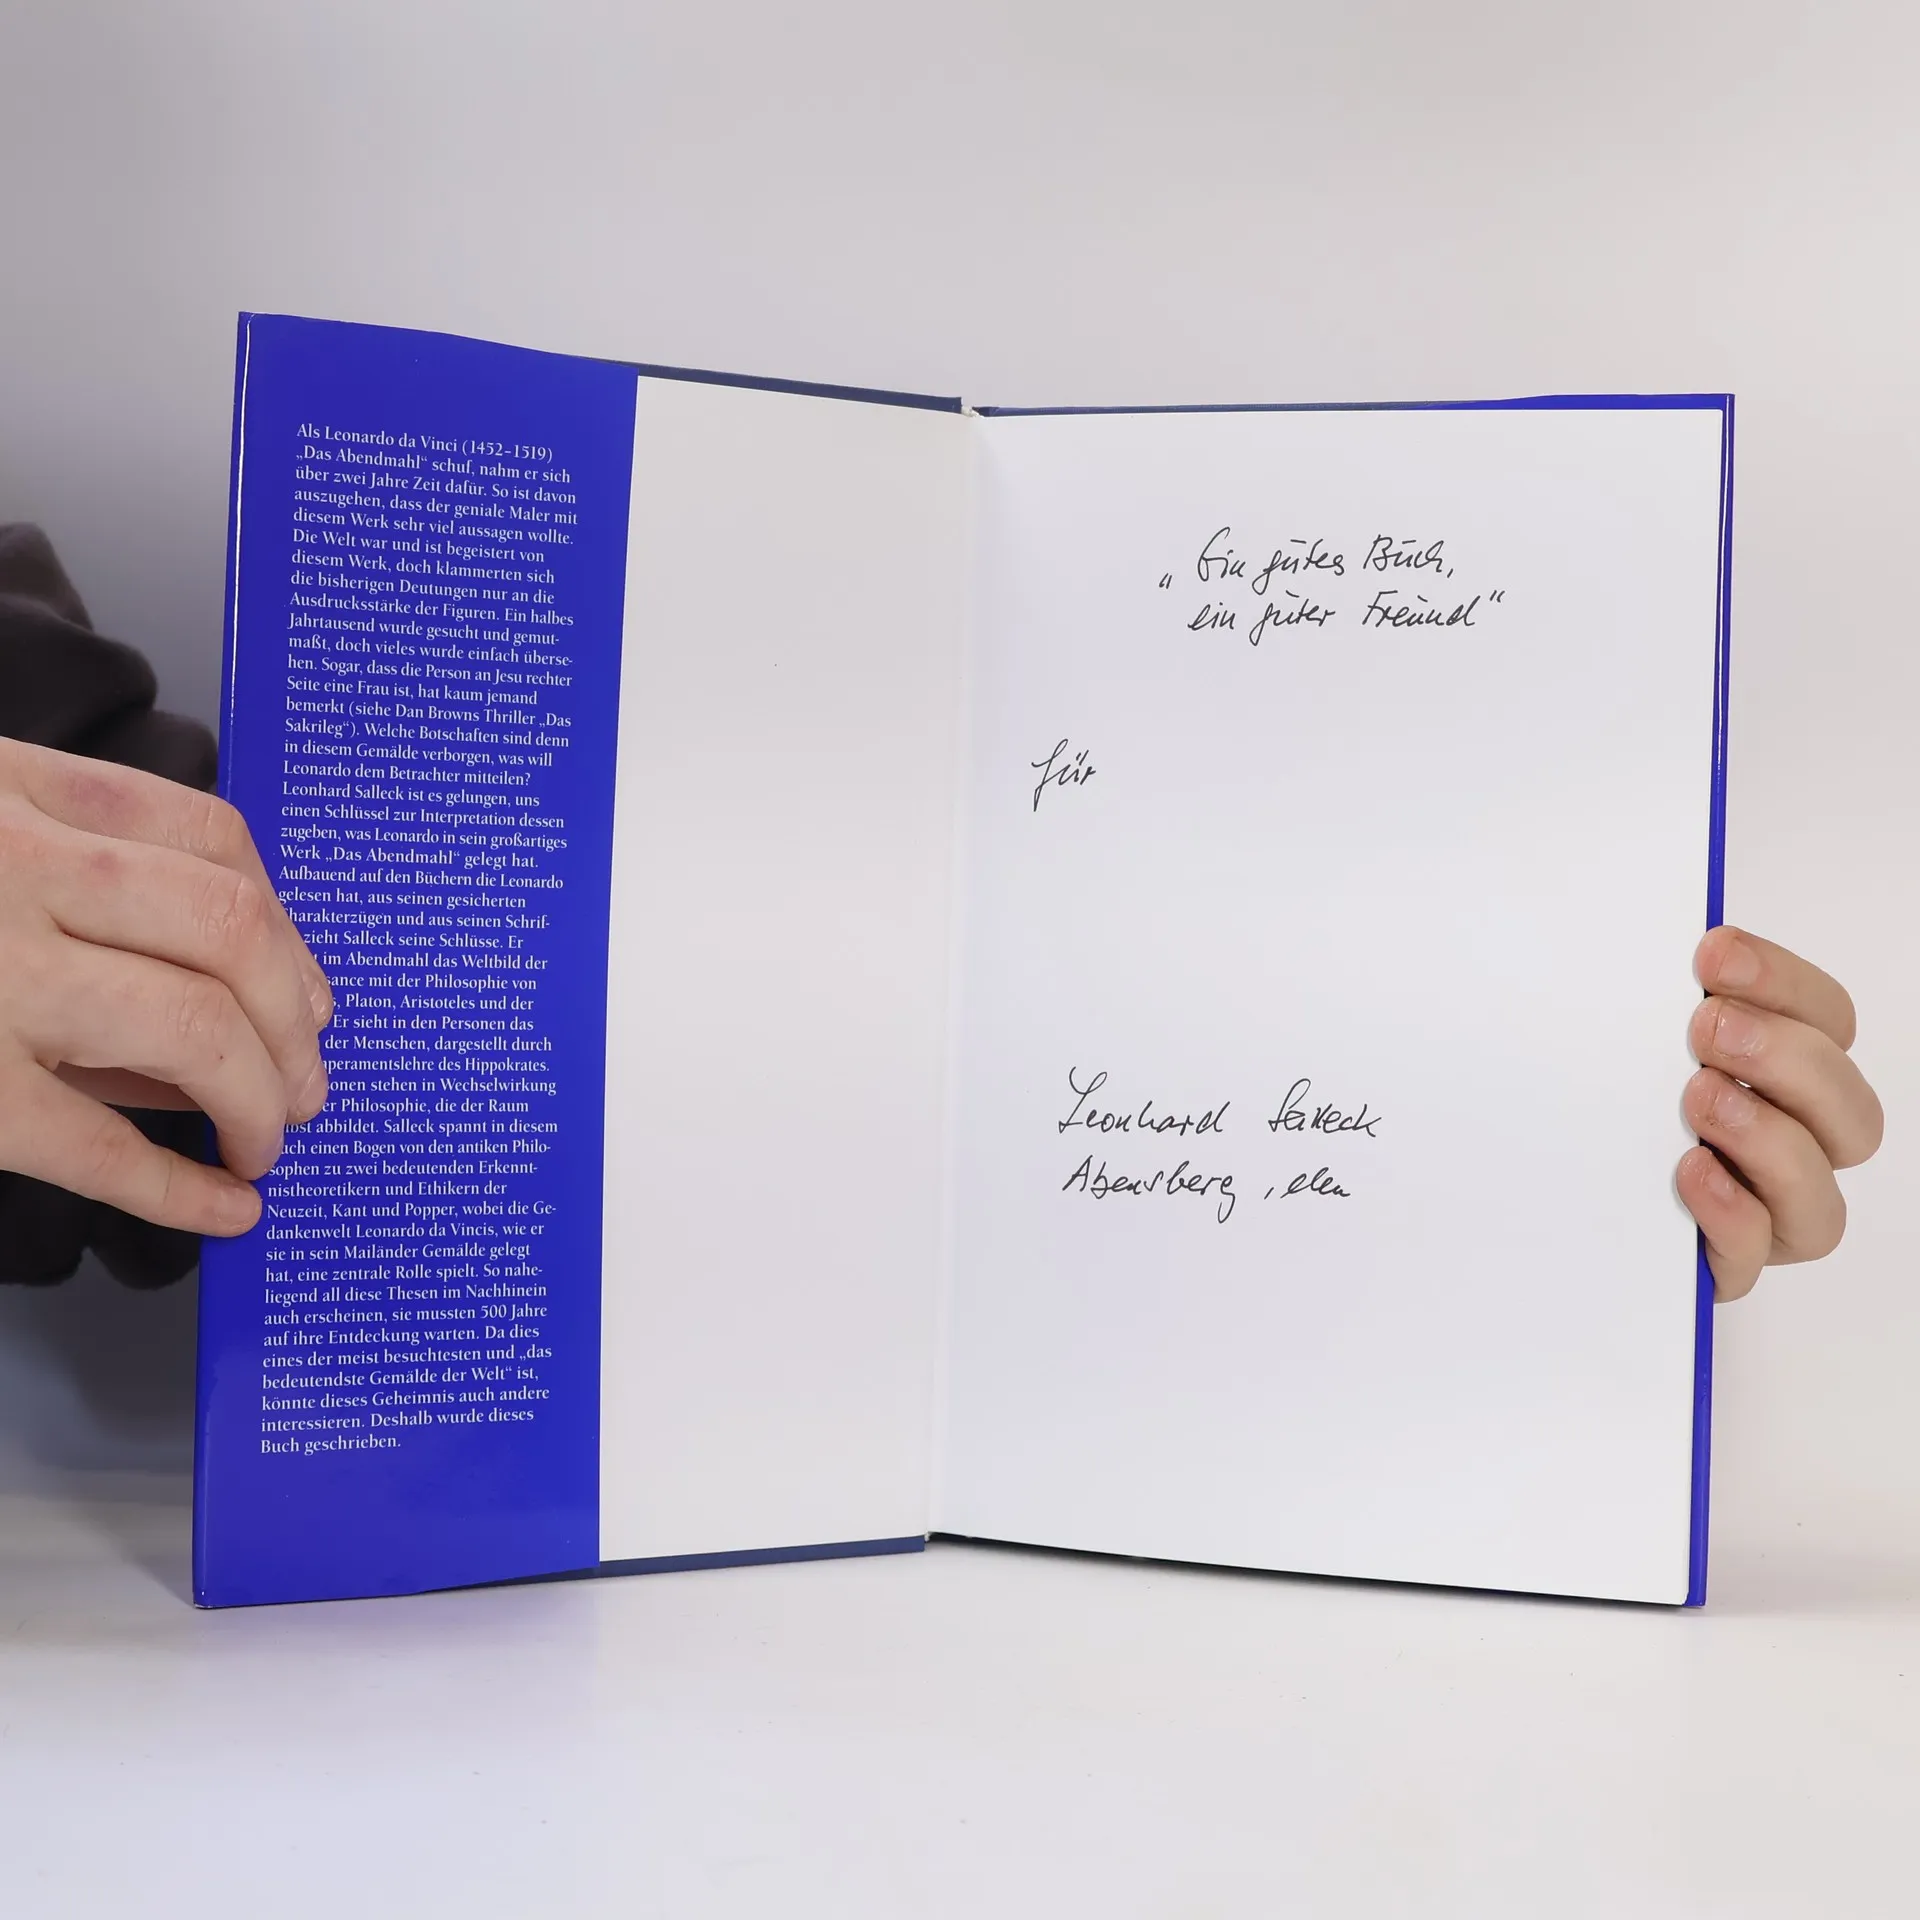 Als Leonardo da Vinci (1452–1519)
„Das Abendmahl“ schuf, nahm er sich
über zwei Jahre Zeit dafür. So ist davon
auszugehen, dass der geniale Maler mit
diesem Werk sehr viel aussagen wollte.
Die Welt war und ist begeistert von
diesem Werk, doch klammerten sich
die bisherigen Deutungen nur an die
Ausdrucksstärke der Figuren. Ein halbes
Jahrtausend wurde gesucht und gemut-
maßt, doch vieles wurde einfach überse-
hen. Sogar, dass die Person an Jesu rechter
Seite eine Frau ist, hat kaum jemand
bemerkt (siehe Dan Browns Thriller „Das
Sakrileg“). Welche Botschaften sind denn
in diesem Gemälde verborgen, was will
Leonardo dem Betrachter mitteilen?
Leonhard Salleck ist es gelungen, uns
einen Schlüssel zur Interpretation dessen
zugeben, was Leonardo in sein großartiges
Werk „Das Abendmahl“ gelegt hat.
Aufbauend auf den Büchern die Leonardo
gelesen hat, aus seinen gesicherten
Charakterzügen und aus seinen Schrif-
zieht Salleck seine Schlüsse. Er
im Abendmahl das Weltbild der
sance mit der Philosophie von
Platon, Aristoteles und der
Er sieht in den Personen das
der Menschen, dargestellt durch
peramentslehre des Hippokrates.
sonen stehen in Wechselwirkung
er Philosophie, die der Raum
lbst abbildet. Salleck spannt in diesem
uch einen Bogen von den antiken Philo-
sophen zu zwei bedeutenden Erkennt-
nistheoretikern und Ethikern der
Neuzeit, Kant und Popper, wobei die Ge-
dankenwelt Leonardo da Vincis, wie er
sie in sein Mailänder Gemälde gelegt
hat, eine zentrale Rolle spielt. So nahe-
liegend all diese Thesen im Nachhinein
auch erscheinen, sie mussten 500 Jahre
auf ihre Entdeckung warten. Da dies
eines der meist besuchtesten und „das
bedeutendste Gemälde der Welt“ ist,
könnte dieses Geheimnis auch andere
interessieren. Deshalb wurde dieses
Buch geschrieben.
„Ein gutes Buch,
ein guter Freund“
für
Leonhard Salleck
Abensberg, den